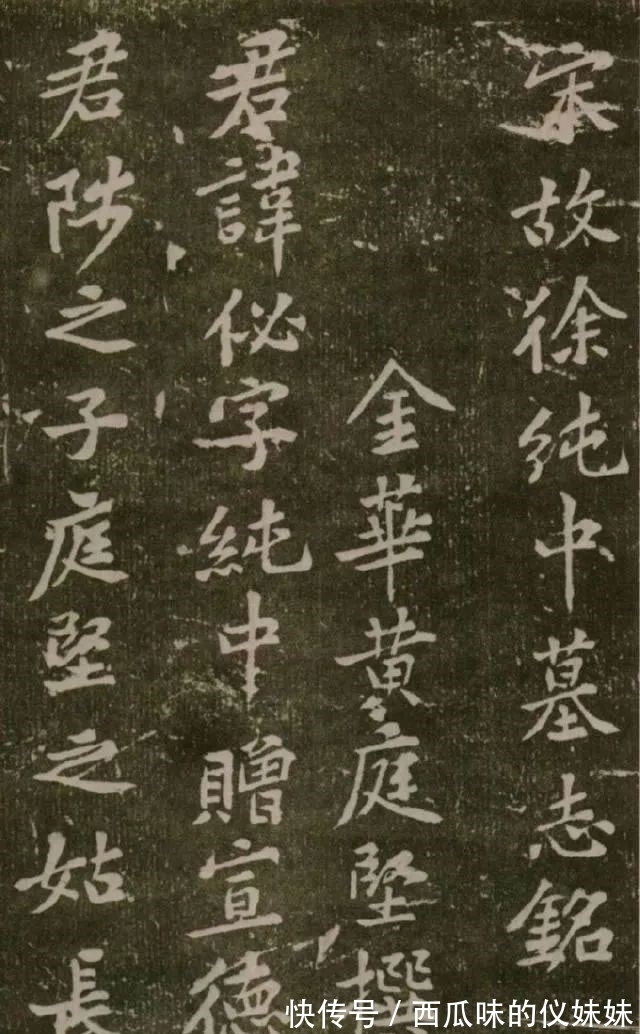 宋故徐純中墓志銘
金華黃庭堅撰
君諱佖字純中贈宣德
君陟之子庭堅之姑長
快传号/西瓜味的仪妹妹